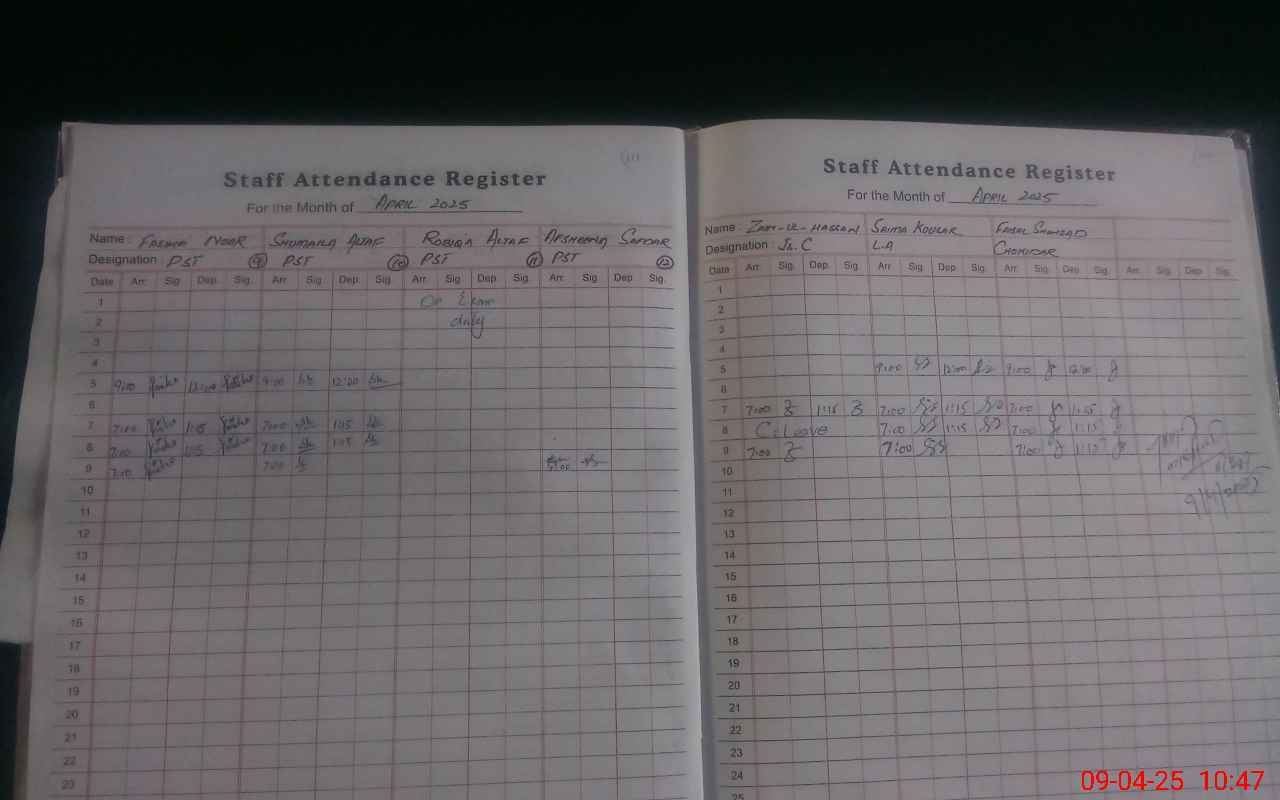 Staff Attendance Register
For the Month of APRIL 2025
Name : NOOR SHUMAILA ALTAF ROBUQA ALTAF SAFDAR
Designation PST 9 PST 10 PST 11 PST 12
Date Arr. Sig. Dep. Sig. Arr. Sig. Dep. Sig. Arr. Sig. Dep. Sig. Arr. Sig. Dep. Sig.
1 On Exam
2 duty
3
4
5 9:00 12:00 9:00 12:00
6
7 7:00 1:15 7:00 1:15
8 7:00 1:15 7:00 1:15
9 7:00 7:00
10
11
12
13
14
15
16
17
18
19
20
21
22
23
Staff Attendance Register
For the Month of APRIL 2025
Name : ZAIN-UL-HASSAN SAIMA KOUSAR FAISAL SHAHZAD
Designation : Jr. C L-A CHOKIDAR
Date Arr. Sig. Dep. Sig. Arr. Sig. Dep. Sig. Arr. Sig. Dep. Sig. Arr. Sig. Dep. Sig.
1
2
3
4
5 9:00 12:00 9:00 12:00
6
7 7:00 1:15 7:00 1:15 7:00 1:15
8 C. Leave 7:00 1:15 7:00 1:15
9 7:00 7:00 7:00 1:15
10
11
12
13
14
15
16
17
18
19
20
21
22
23
24
25
9/4/2025
09-04-25 10:47